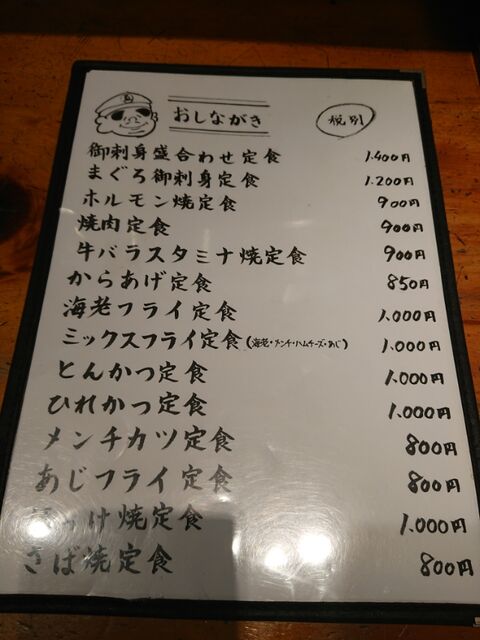 おしながき
税別
御刺身盛合わせ定食 1,400円
まぐろ御刺身定食 1,200円
ホルモン焼定食 900円
焼肉定食 900円
牛バラスタミナ焼定食 900円
からあげ定食 850円
海老フライ定食 1,000円
ミックスフライ定食(海老・メンチ・ハムチーズ・あじ) 1,000円
とんかつ定食 1,000円
ひれかつ定食 1,000円
メンチカツ定食 800円
あじフライ定食 800円
ほっけ焼定食 1,000円
さば焼定食 800円